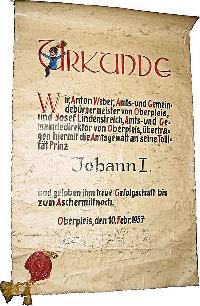 URKUNDE
Wir, Anton Weber, Amts- und Gemein-
debürgermeister von Oberpleis,
und Josef Lindenstreich, Amts- und Ge-
meindedirektor von Oberpleis, übertra-
gen hiermit die Amtsgewalt an seine Tolli-
tät Prinz
Johann I.
und geloben ihm treue Gefolgschaft bis
zum Aschermittwoch.
Oberpleis, den 10. Febr. 1957